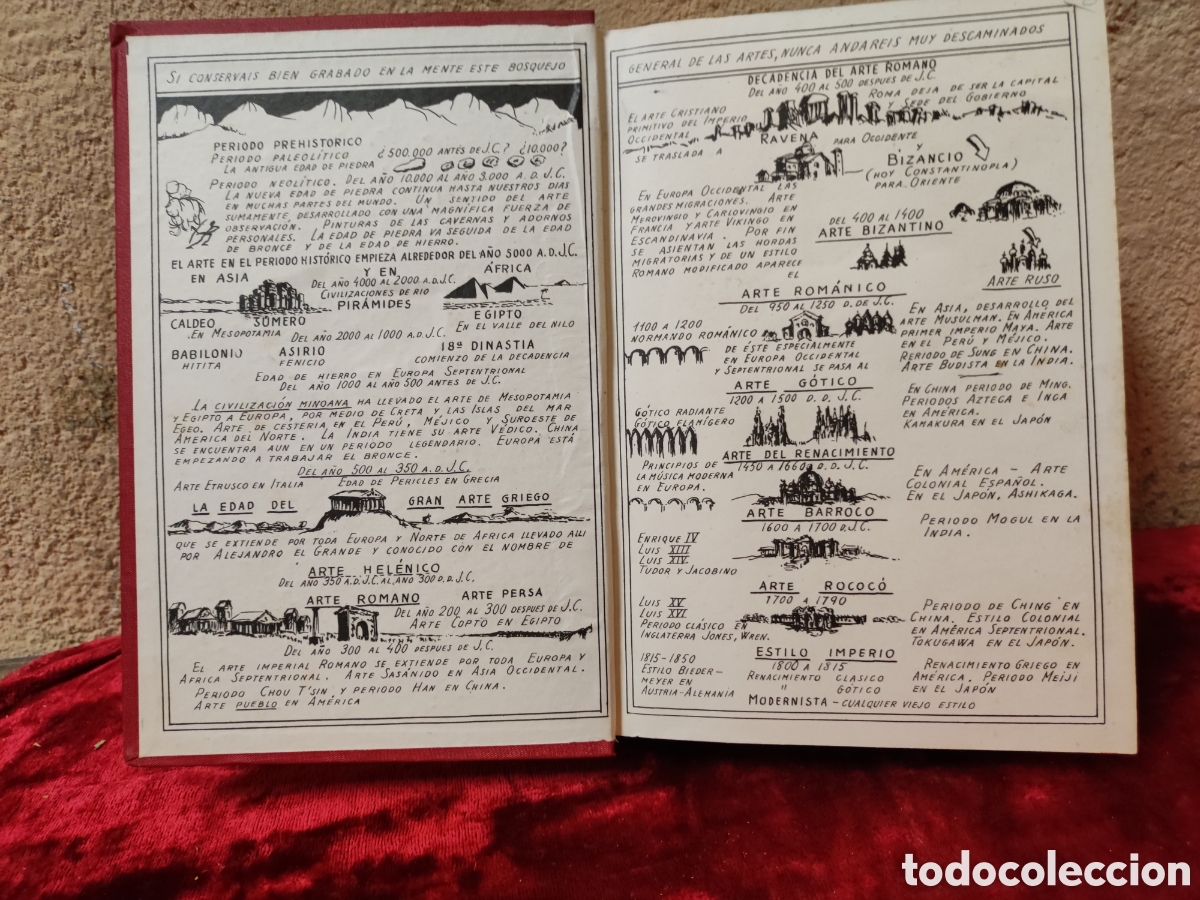 SI CONSERVAIS BIEN GRABADO EN LA MENTE ESTE BOSQUEJO
PERIODO PREHISTORICO
PERIODO PALEOLÍTICO ¿500.000 ANTES DE J.C.? ¿10.000?
LA ANTIGUA EDAD DE PIEDRA
PERIODO NEOLÍTICO. DEL AÑO 10.000 AL AÑO 3.000 A.D.J.C.
LA NUEVA EDAD DE PIEDRA CONTINUA HASTA NUESTROS DIAS
EN MUCHAS PARTES DEL MUNDO. UN SENTIDO DEL ARTE
SUMAMENTE DESARROLLADO CON UNA MAGNÍFICA FUERZA DE
OBSERVACIÓN. PINTURAS DE LAS CAVERNAS Y ADORNOS
PERSONALES. LA EDAD DE PIEDRA VA SEGUIDA DE LA EDAD
DE BRONCE Y DE LA EDAD DE HIERRO.
EL ARTE EN EL PERIODO HISTÓRICO EMPIEZA ALREDEDOR DEL AÑO 5000 A.D.J.C.
EN ASIA Y EN ÁFRICA
DEL AÑO 4000 AL 2000 A.D.J.C.
CIVILIZACIONES DE RIO
PIRÁMIDES
CALDEO SÚMERO EGIPTO
EN MESOPOTAMIA DEL AÑO 2000 AL 1000 A.D.J.C. EN EL VALLE DEL NILO
BABILONIO ASIRIO 18ª DINASTIA
HITITA FENICIO COMIENZO DE LA DECADENCIA
EDAD DE HIERRO EN EUROPA SEPTENTRIONAL
DEL AÑO 1000 AL AÑO 500 ANTES DE J.C.
LA CIVILIZACIÓN MINOANA HA LLEVADO EL ARTE DE MESOPOTAMIA
Y EGIPTO A EUROPA, POR MEDIO DE CRETA Y LAS ISLAS DEL MAR
EGEO. ARTE DE CESTERIA EN EL PERÚ, MÉJICO Y SUROESTE DE
AMERICA DEL NORTE. LA INDIA TIENE SU ARTE VÉDICO. CHINA
SE ENCUENTRA AUN EN UN PERIODO LEGENDARIO. EUROPA ESTÁ
EMPEZANDO A TRABAJAR EL BRONCE.
DEL AÑO 500 AL 350 A.D.J.C.
ARTE ETRUSCO EN ITALIA EDAD DE PERICLES EN GRECIA
LA EDAD DEL GRAN ARTE GRIEGO
QUE SE EXTIENDE POR TODA EUROPA Y NORTE DE AFRICA LLEVADO ALLI
POR ALEJANDRO EL GRANDE Y CONOCIDO CON EL NOMBRE DE
ARTE HELÉNICO
DEL AÑO 350 A.D.J.C. AL AÑO 300 D.D.J.C.
ARTE ROMANO ARTE PERSA
DEL AÑO 200 AL 300 DESPUES DE J.C.
ARTE COPTO EN EGIPTO
DEL AÑO 300 AL 400 DESPUES DE J.C.
EL ARTE IMPERIAL ROMANO SE EXTIENDE POR TODA EUROPA Y
AFRICA SEPTENTRIONAL. ARTE SASÁNIDO EN ASIA OCCIDENTAL.
PERIODO CHOU T'SIN Y PERIODO HAN EN CHINA.
ARTE PUEBLO EN AMÉRICA
GENERAL DE LAS ARTES, NUNCA ANDAREIS MUY DESCAMINADOS
DECADENCIA DEL ARTE ROMANO
DEL AÑO 400 AL 500 DESPUES DE J.C.
ROMA DEJA DE SER LA CAPITAL
Y SEDE DEL GOBIERNO
EL ARTE CRISTIANO
PRIMITIVO DEL IMPERIO
OCCIDENTAL
SE TRASLADA A
RAVENA PARA OCCIDENTE
Y BIZANCIO
(HOY CONSTANTINOPLA)
PARA ORIENTE
EN EUROPA OCCIDENTAL LAS
GRANDES MIGRACIONES. ARTE
MEROVINGIO Y CARLOVINGIO EN
FRANCIA Y ARTE VIKINGO EN
ESCANDINAVIA. POR FIN
SE ASIENTAN LAS HORDAS
MIGRATORIAS Y DE UN ESTILO
ROMANO MODIFICADO APARECE
EL
DEL 400 AL 1400
ARTE BIZANTINO
ARTE RUSO
ARTE ROMÁNICO
DEL 950 AL 1250 D. DE J.C.
1100 A 1200
NORMANDO ROMÁNICO
DE ÉSTE ESPECIALMENTE
EN EUROPA OCCIDENTAL
Y SEPTENTRIONAL SE PASA AL
EN ASIA, DESARROLLO DEL
ARTE MUSULMAN. EN AMÉRICA
PRIMER IMPERIO MAYA. ARTE
EN EL PERÚ Y MÉJICO.
PERIODO DE SUNG EN CHINA.
ARTE BUDISTA EN LA INDIA.
ARTE GÓTICO
1200 A 1500 D. D. J.C.
GÓTICO RADIANTE
GÓTICO FLAMÍGERO
EN CHINA PERIODO DE MING.
PERIODOS AZTECA E INCA
EN AMÉRICA.
KAMAKURA EN EL JAPÓN
ARTE DEL RENACIMIENTO
1450 A 1660 D. D. J.C.
PRINCIPIOS DE
LA MÚSICA MODERNA
EN EUROPA.
EN AMÉRICA - ARTE
COLONIAL ESPAÑOL.
EN EL JAPÓN, ASHIKAGA.
ARTE BARROCO
1600 A 1700 D.J.C.
PERIODO MOGUL EN LA
INDIA.
ENRIQUE IV
LUIS XIII
LUIS XIV
TUDOR Y JACOBINO
ARTE ROCOCÓ
1700 A 1790
LUIS XV
LUIS XVI
PERIODO CLÁSICO EN
INGLATERRA JONES, WREN.
PERIODO DE CHING EN
CHINA. ESTILO COLONIAL
EN AMÉRICA SEPTENTRIONAL.
TOKUGAWA EN EL JAPÓN.
ESTILO IMPERIO
1800 A 1815
1815-1850
ESTILO BIEDER-
MEYER EN
AUSTRIA-ALEMANIA
RENACIMIENTO CLASICO
" GÓTICO
RENACIMIENTO GRIEGO EN
AMÉRICA. PERIODO MEIJI
EN EL JAPÓN
MODERNISTA - CUALQUIER VIEJO ESTILO
todocoleccion